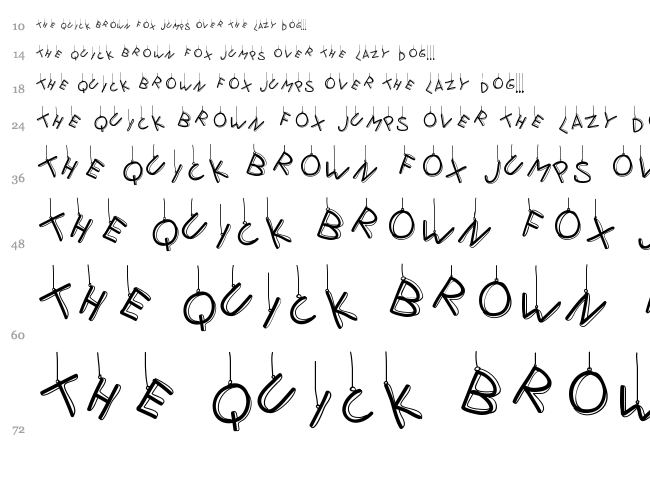 10 THE QUICK BROWN FOX JUMPS OVER THE LAZY DOG!!!
14 THE QUICK BROWN FOX JUMPS OVER THE LAZY DOG!!!
18 THE QUICK BROWN FOX JUMPS OVER THE LAZY DOG!!!
24 THE QUICK BROWN FOX JUMPS OVER THE LAZY DO
36 THE QUICK BROWN FOX JUMPS OV
48 THE QUICK BROWN FOX J
60 THE QUICK BROWN
72 THE QUICK BROW